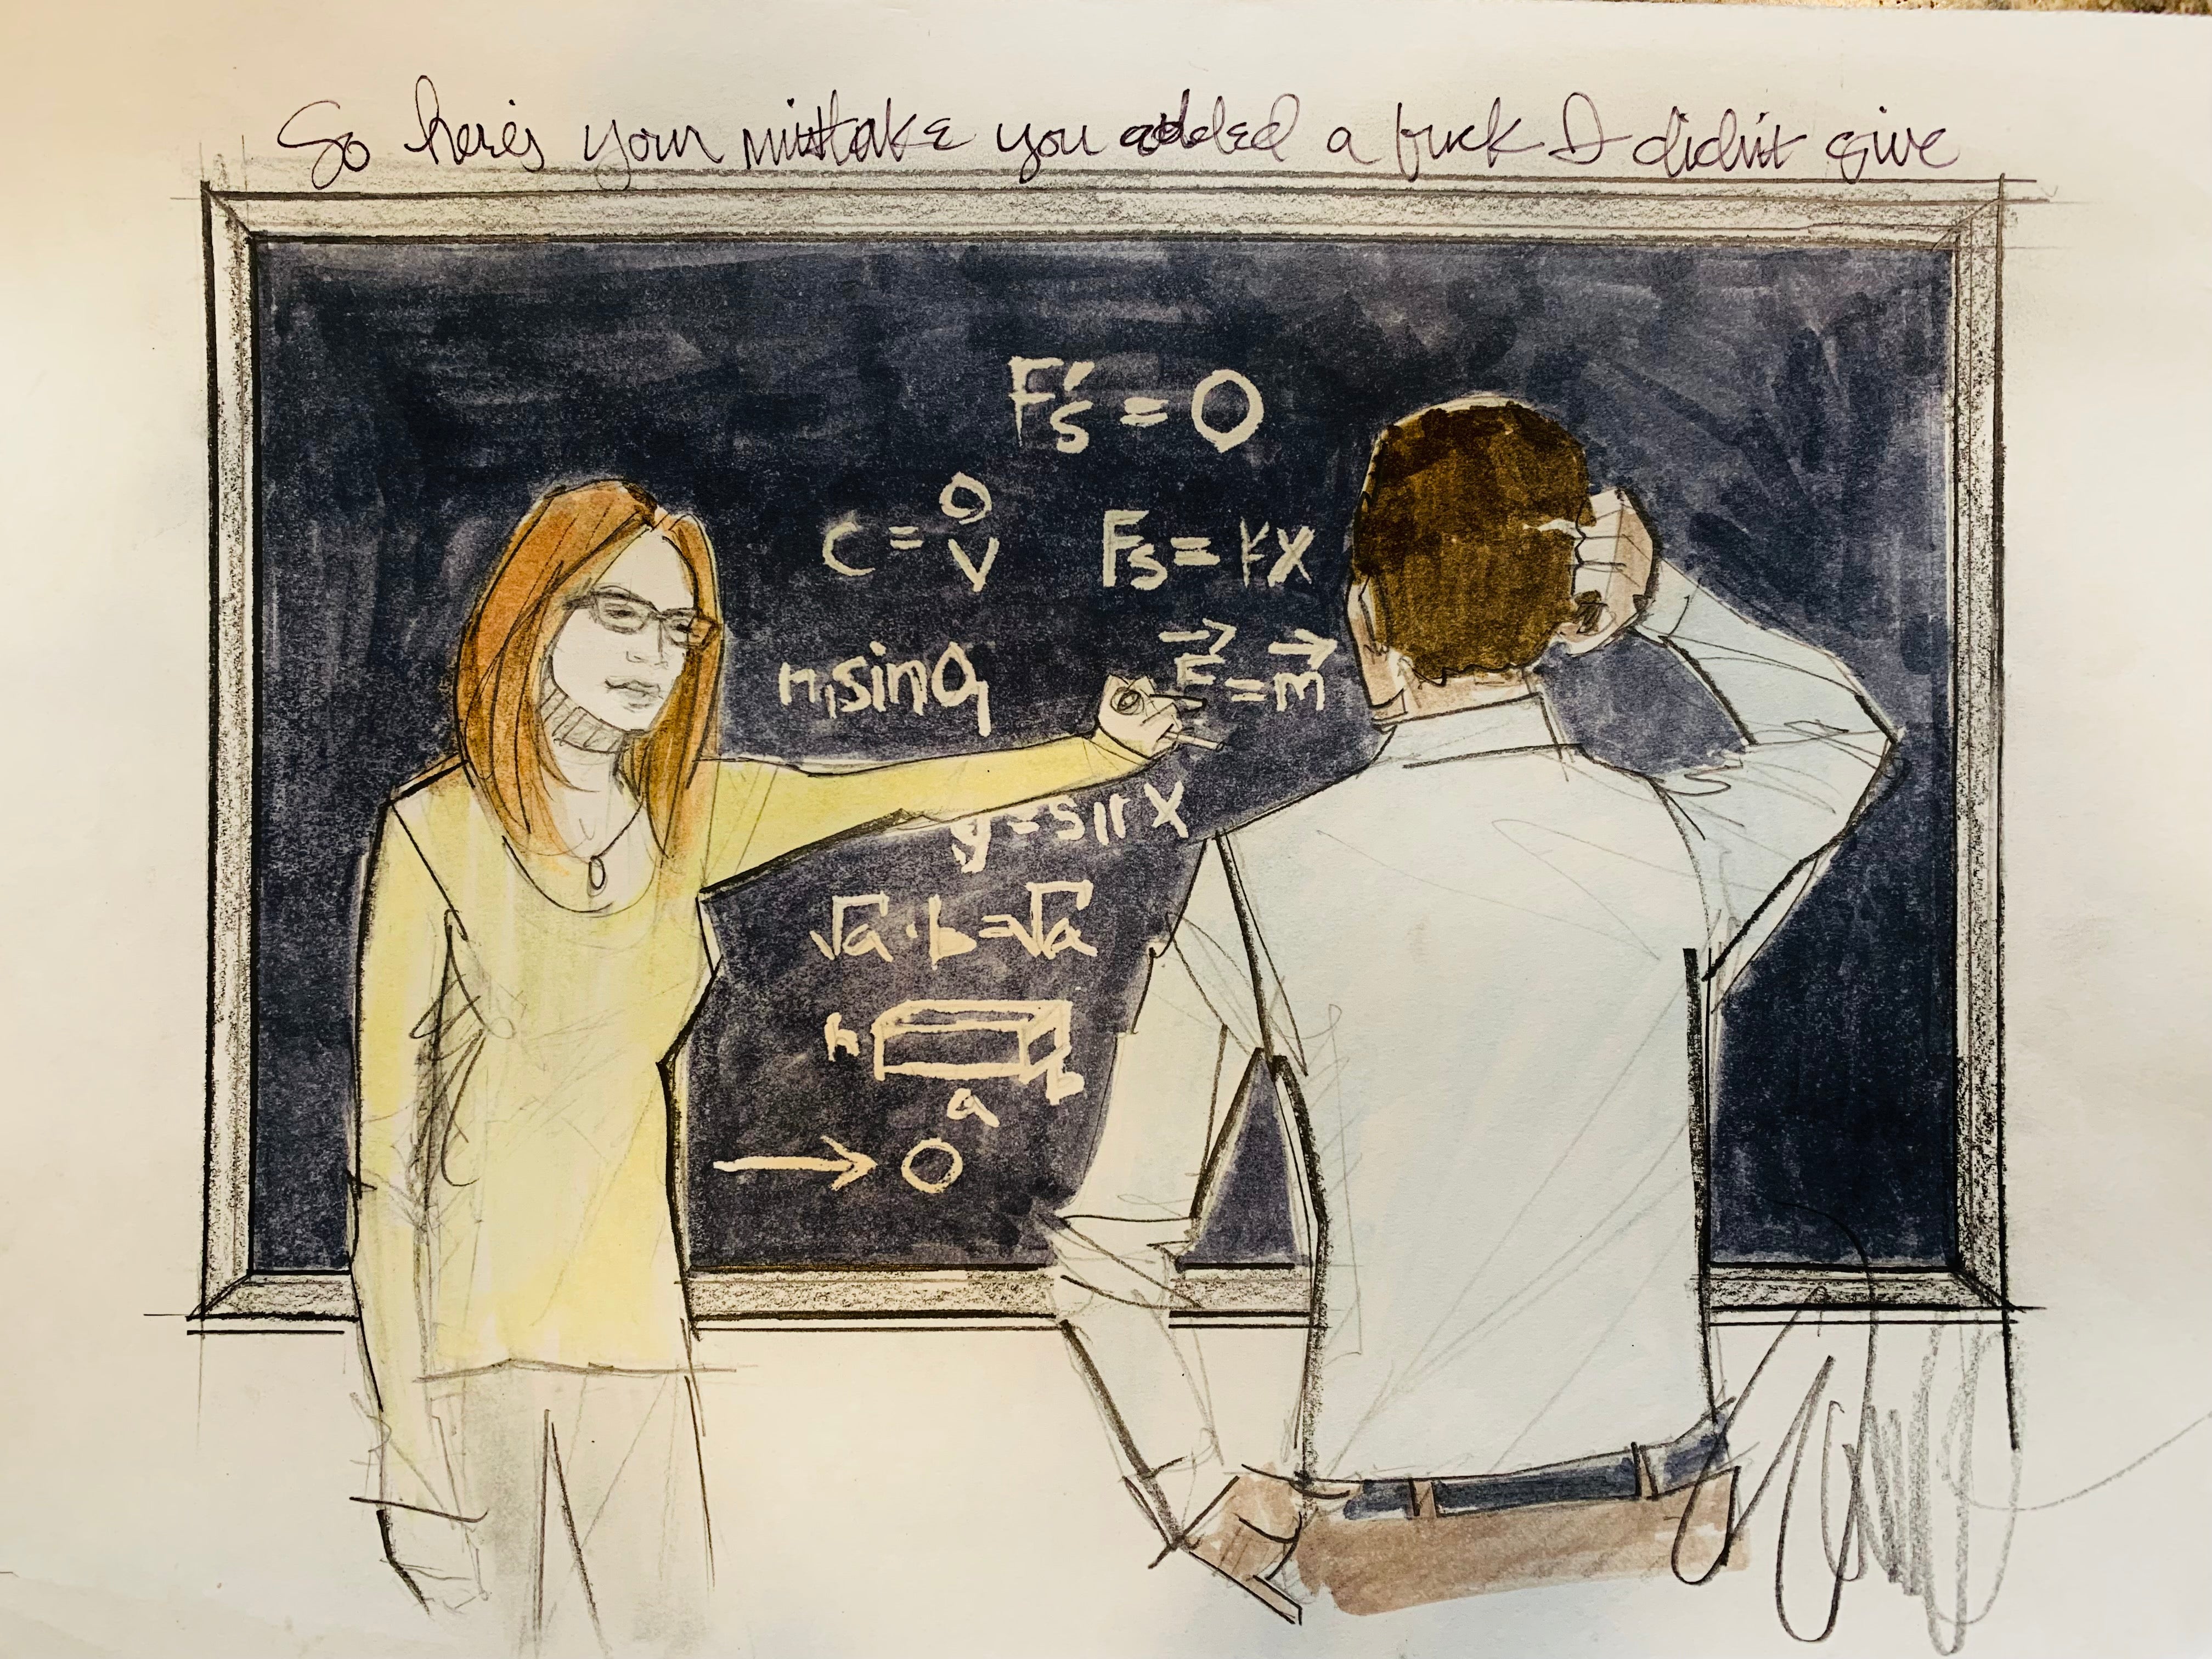 So here's your mistake you added a fuck I didn't give
F's = 0
C = O/V
Fs = kx
n₁sinθ₁
E⃗ = m⃗
y = sin x
√a · b = √a
h
b
a
→ 0